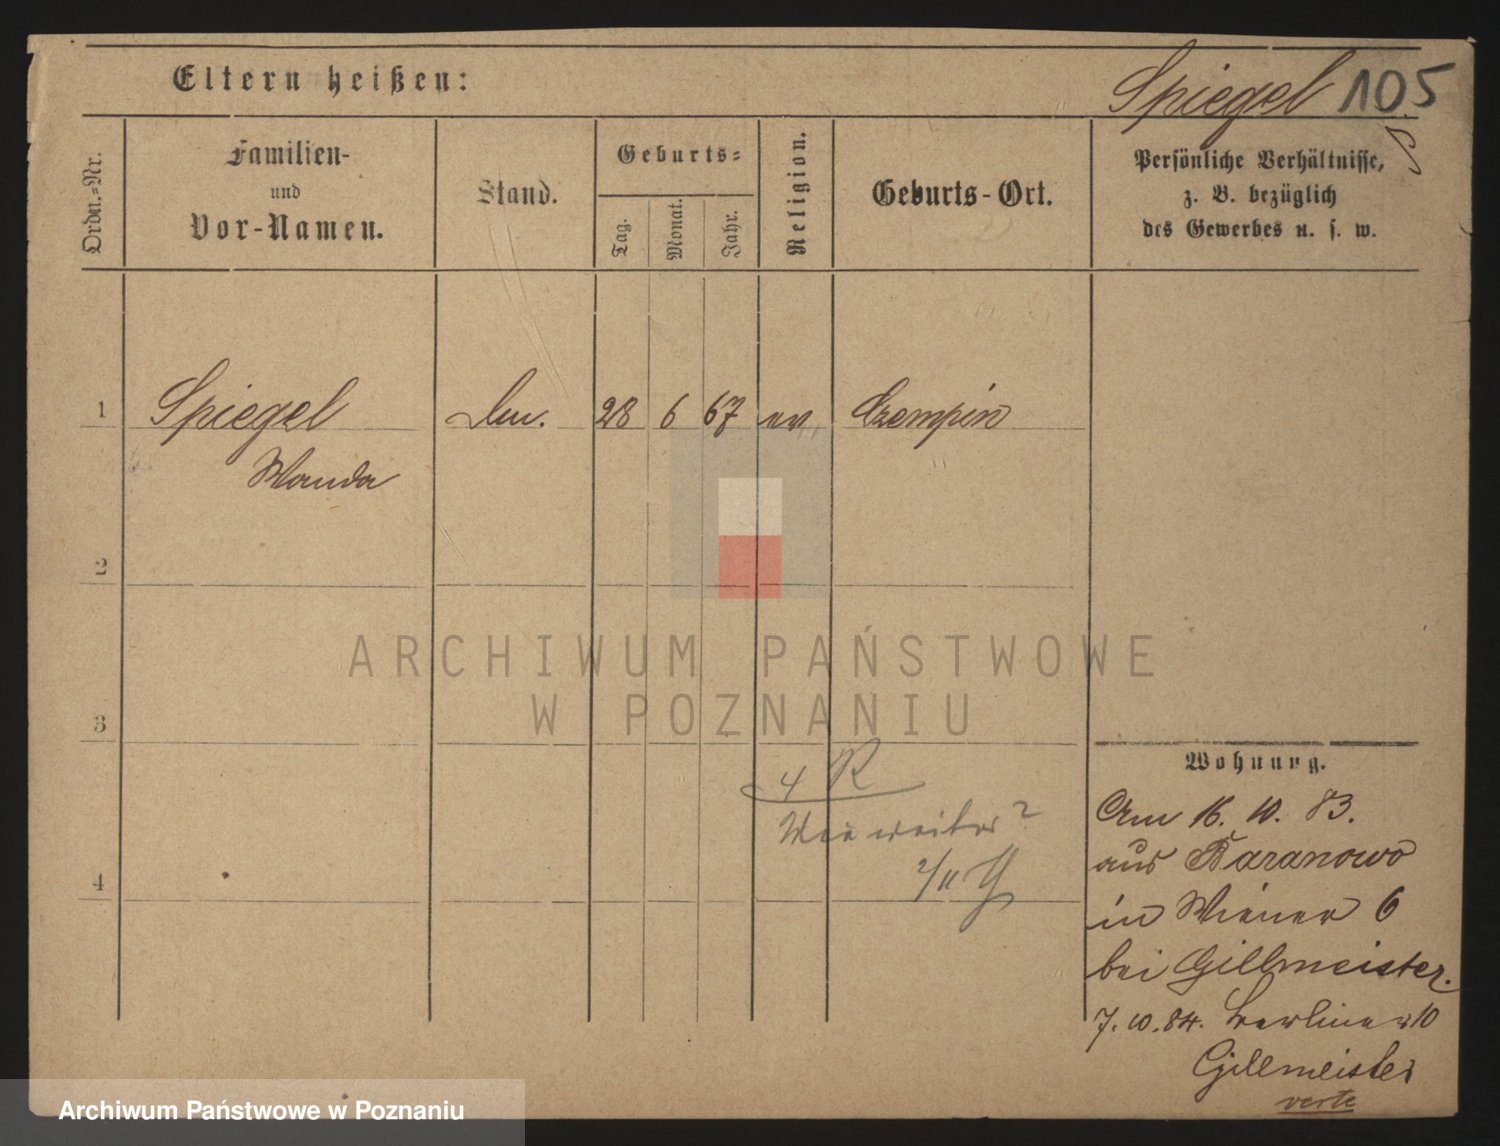 Eltern heißen:
Spiegel 105
Ordn.=Nr.
Familien-
und
Vor-Namen.
Stand.
Geburts=
Tag.
Monat.
Jahr.
Religion.
Geburts-Ort.
Persönliche Verhältnisse,
z. B. bezüglich
des Gewerbes u. s. w.
1
Spiegel
28 6 67 ev.
Czempin
Wanda
2
ARCHIWUM PAŃSTWOWE
W POZNANIU
3
4 R
Wie weiter?
4
Wohnung.
Am 16. 10. 83.
aus Baranowo
in Wiener 6
bei Gillmeister.
7.10.84. Berliner 10
Gillmeister
verte
Archiwum Państwowe w Poznaniu